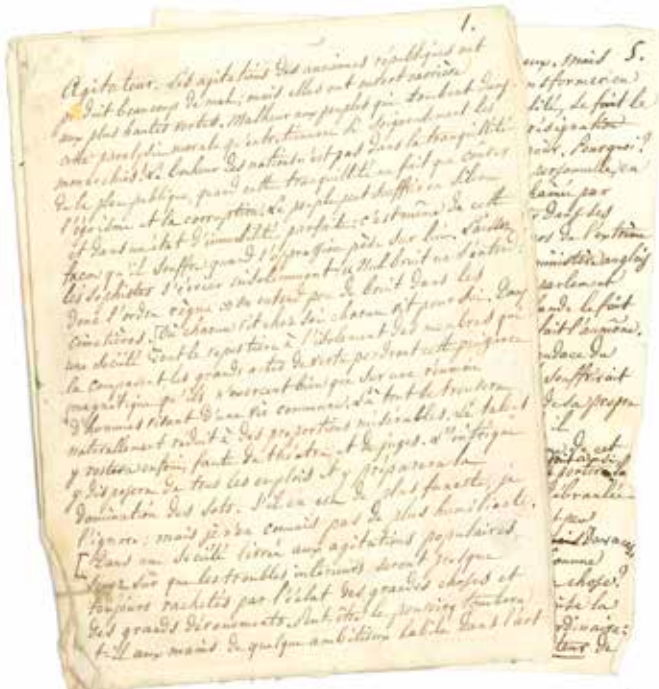 1.
Agitateur. Les agitations des anciennes républiques ont
produit beaucoup de mal; mais elles ont ouvert carrière
aux plus hautes vertus. Malheur aux peuples qui tombent dans
cette paralysie morale qu'entretiennent si soigneusement les
monarchies! Le bonheur des nations n'est pas dans la tranquillité
de la place publique, quand cette tranquillité ne fait que couver
l'égoïsme et la corruption. Le peuple peut souffrir en silence
et dans un état d'immobilité parfaite; c'est même de cette
façon qu'il souffre quand l'oppression pèse sur lui. Laissez
les sophistes s'écrier insolemment: Nul bruit ne s'entend:
donc l'ordre règne. On entend peu de bruit dans les
cimetières. Où chacun vit chez soi chacun vit pour soi. Dans
une société où le repos tient à l'isolement des membres qui
la composent les grands actes de vertu perdront cette puissance
magnétique qu'ils n'exercent bien que sur une réunion
d'hommes vivant d'une vie commune. Là tout se trouvera
naturellement réduit à des proportions misérables. Le talent
y restera enfoui, faute de théâtre et de juges. L'intrigue
y disposera de tous les emplois et y préparera la
domination des sots. S'il en est de plus funeste, je
l'ignore; mais je n'en connais pas de plus humiliante.
[Dans une société livrée aux agitations populaires
soyez sûr que les troubles intérieurs seront presque
toujours rachetés par l'éclat des grandes choses et
des grands dévouements. Peut-être le pouvoir y tombera
t-il aux mains de quelque ambitieux habile dans l'art
5.
mais
transformer en
le fait le
résignation
Pourquoi?
personnes, en
par
dans les
de l'extrême
ministère anglais
parlement
le fait
fait l'aumône.
souffrirait
de sa propre
il
est
chose?
la
ordinaire:
de